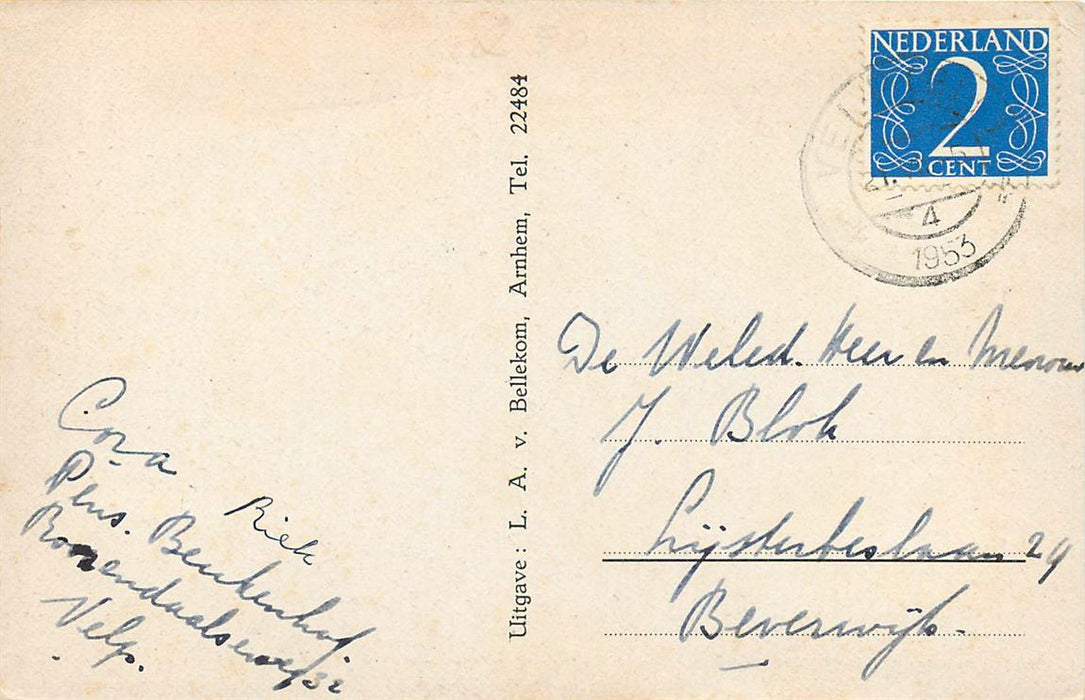 NEDERLAND
2
CENT
VEL
4
1953
Uitgave : L. A. v. Bellekom, Arnhem, Tel. 22484
De Weled. Heer en Mevrouw
J. Blok
Lijsterbeslaan 29
Beverwijk.
Cora
Riek
Pens. Beukenhof.
Rozendaalseweg 32
Velp.